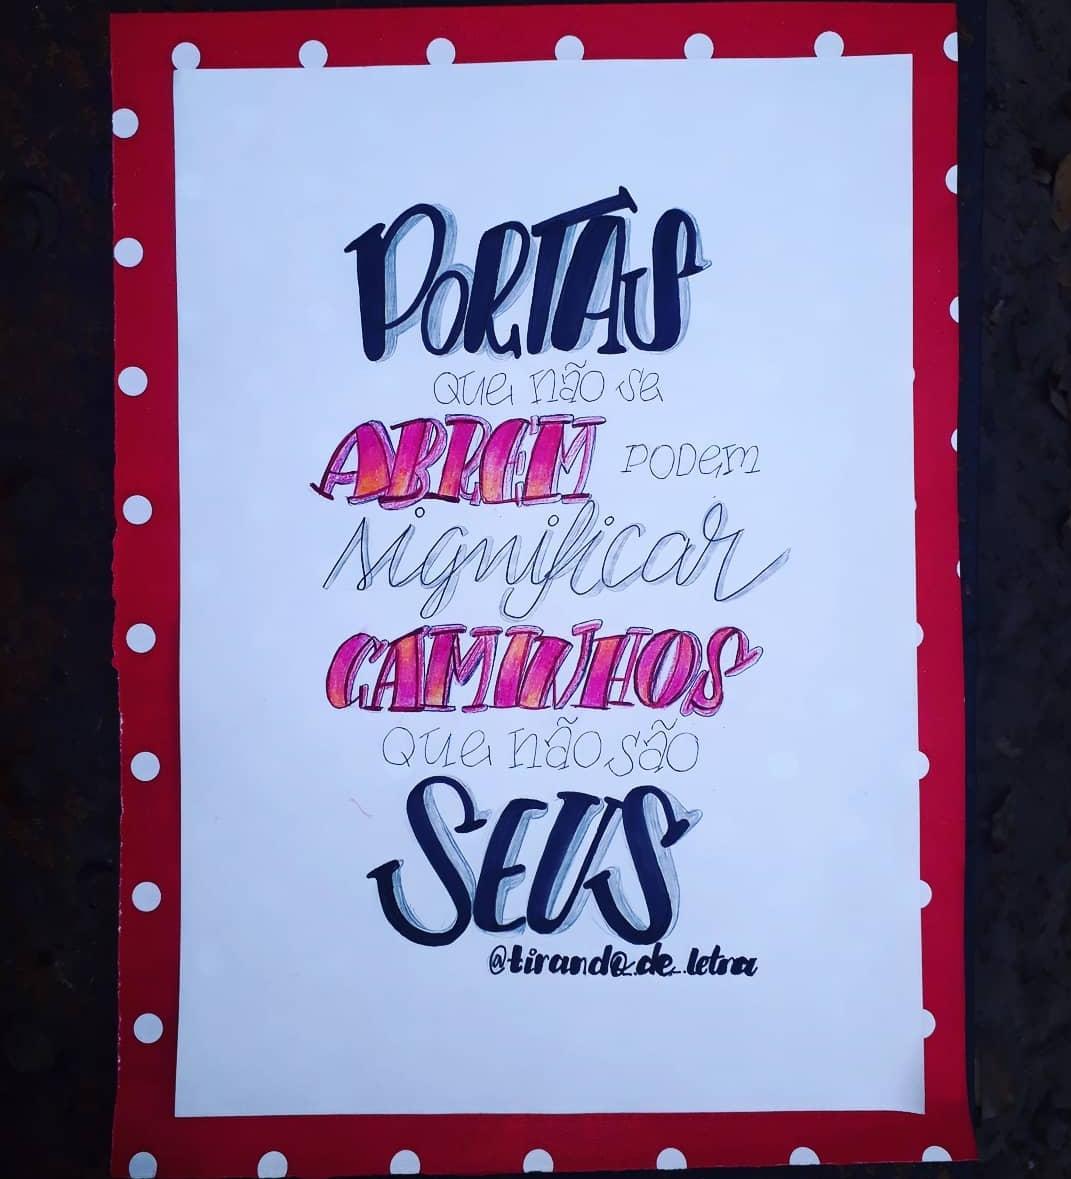 PORTAS
que não se
ABREM PODEM
significar
CAMINHOS
que não são
SEUS
@tirando_de_letra